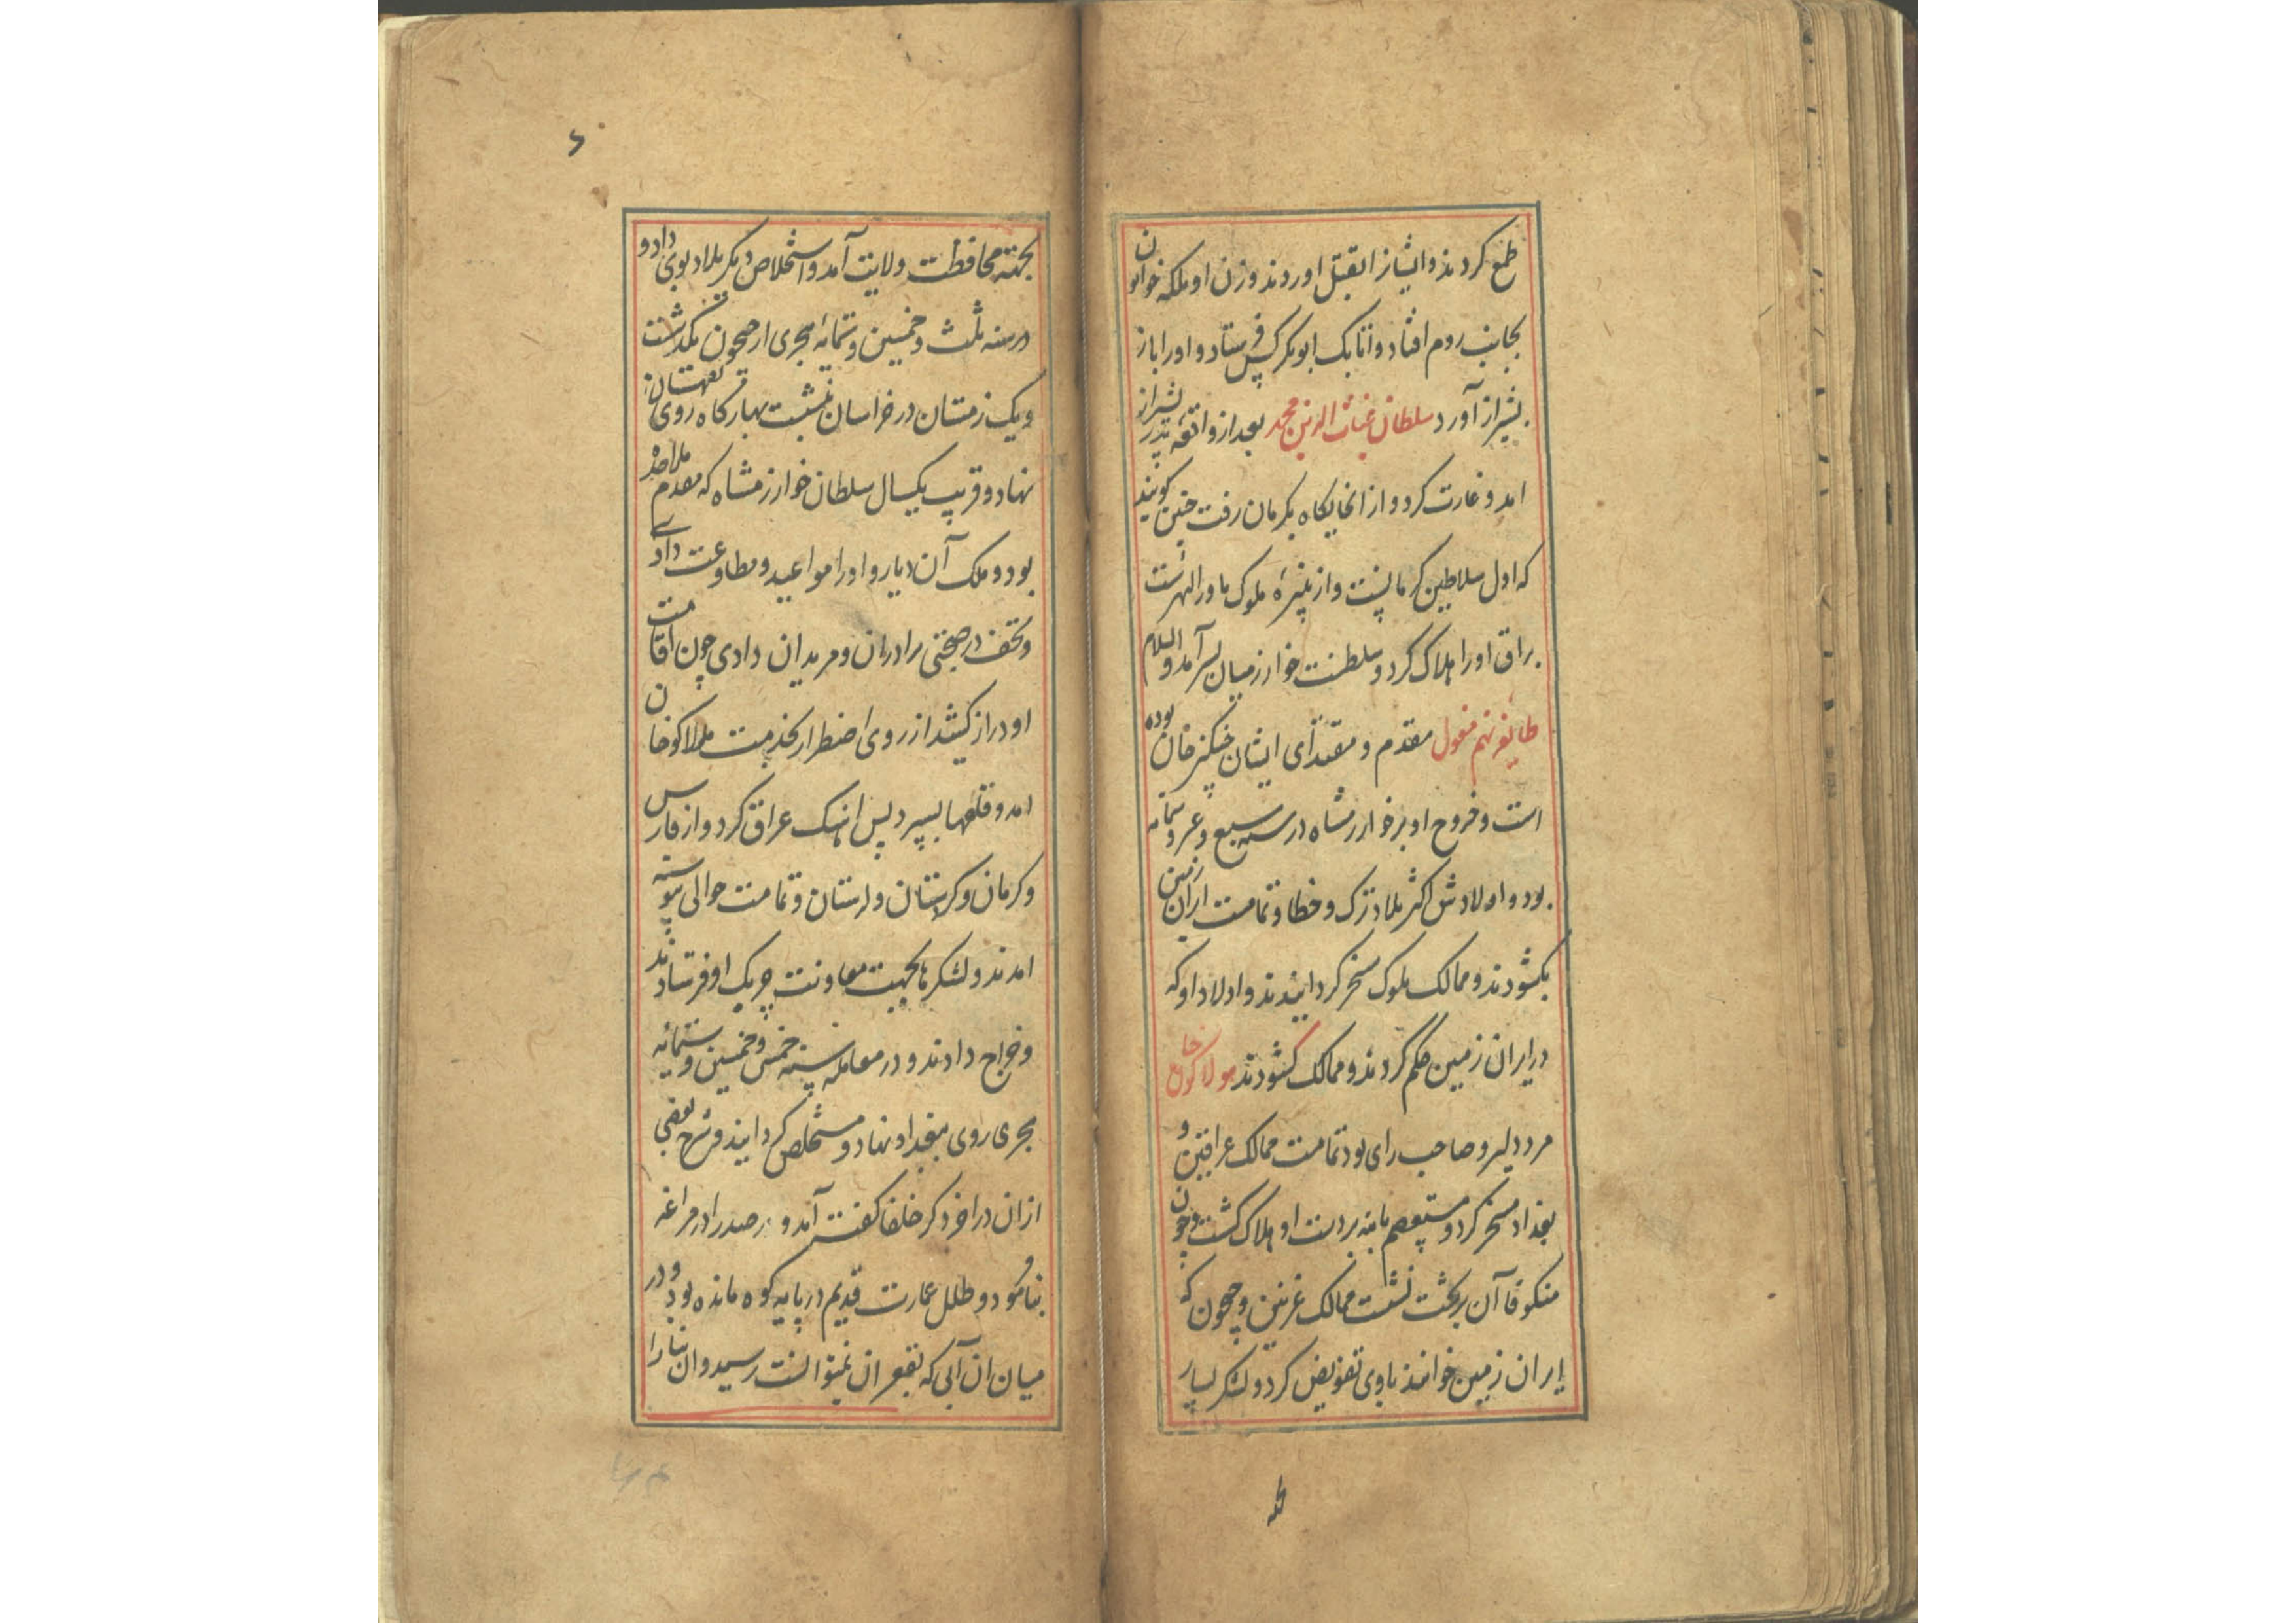 طمع کردند و ایشانرا بقتل اوردند و زن او ملکه خواتون
بجانب روم افتاد و اتابک ابوبکر کس فرستاد و اورا باز
بشیراز آورد سلطان غیاث الدین محمد بعد از واقعه پدر بشیراز
امد و غارت کرد و از انجایکاه بکرمان رفت چنین کویند
که اول سلاطین کرمانست و از نبیره ملوک ماورالنهرست
براق اورا هلاک کرد و سلطنت خوارزمیان بسر آمد والسلام
طایفه نهم مغول مقدم و مقتدای ایشان چنکیز خان بوده
است و خروج او بر خوارزمشاه در سنه سبع و عشر و ستمائه
بود و اولادش اکثر بلاد ترک و خطا و تمامت ایران زمین
بکشودند و ممالک ملوک مسخر کردانیدند و اولاد او که
در ایران زمین حکم کردند و ممالک کشودند هولاکو خان
مرد دلیر و صاحب رای بود تمامت ممالک عراقین و
بغداد مسخر کرد و مستعصم بالله بر دست او هلاک کشت و چون
منکو قاآن بر تخت نشست ممالک غزنین و جیحون که
ایران زمین خوانند باوی تفویض کرد و لشکر بسیار
بجهته محافظت ولایت آمد و استخلاص دیکر بلاد بوی داد و
در سنه ثلث و خمسین و ستمائه هجری از جیحون بکذشت
و یک زمستان در خراسان نشست بهار کاه روی بقهستان
نهاد و قریب یکسال سلطان خوارزمشاه که مقدم ملاحده
بود و ملک آن دیار و اورا مواعید و مطاوعت دادی
و تحف در صحبتی برادران و مریدان دادی چون اقامت
او دراز کشید از روی اضطرار بخدمت هلاکو خان
امد و قلعها بسپرد پس اهنک عراق کرد و از فارس
و کرمان و کردستان و لرستان و تمامت حوالی پیوسته
امدند و لشکرها بجهت معاونت چریک او فرستادند
و خراج دادند و در معامله سنه خمس و خمسین و ستمائه
هجری روی ببغداد نهاد و مستخلص کردانید و شرح بعضی
ازان در اخر ذکر خلفا کفته آمد و رصد را در مراغه
بنا نمود و طلل عمارت قدیم در پایه کوه مانده بود و در
میان ان آبی که بقعر ان نمیتوانست رسید و ان بنا را